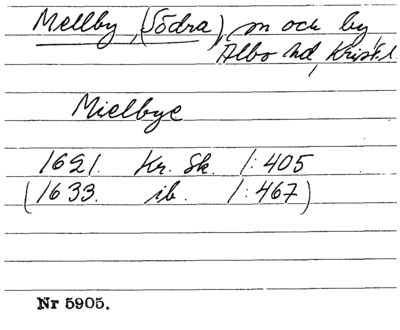 Mellby, (Södra), sn och by
Albo hd, Krist. l.
Mielbye
1621. Kr. Sk. 1:405
(1633. ib. 1:467)
Nr 5905.